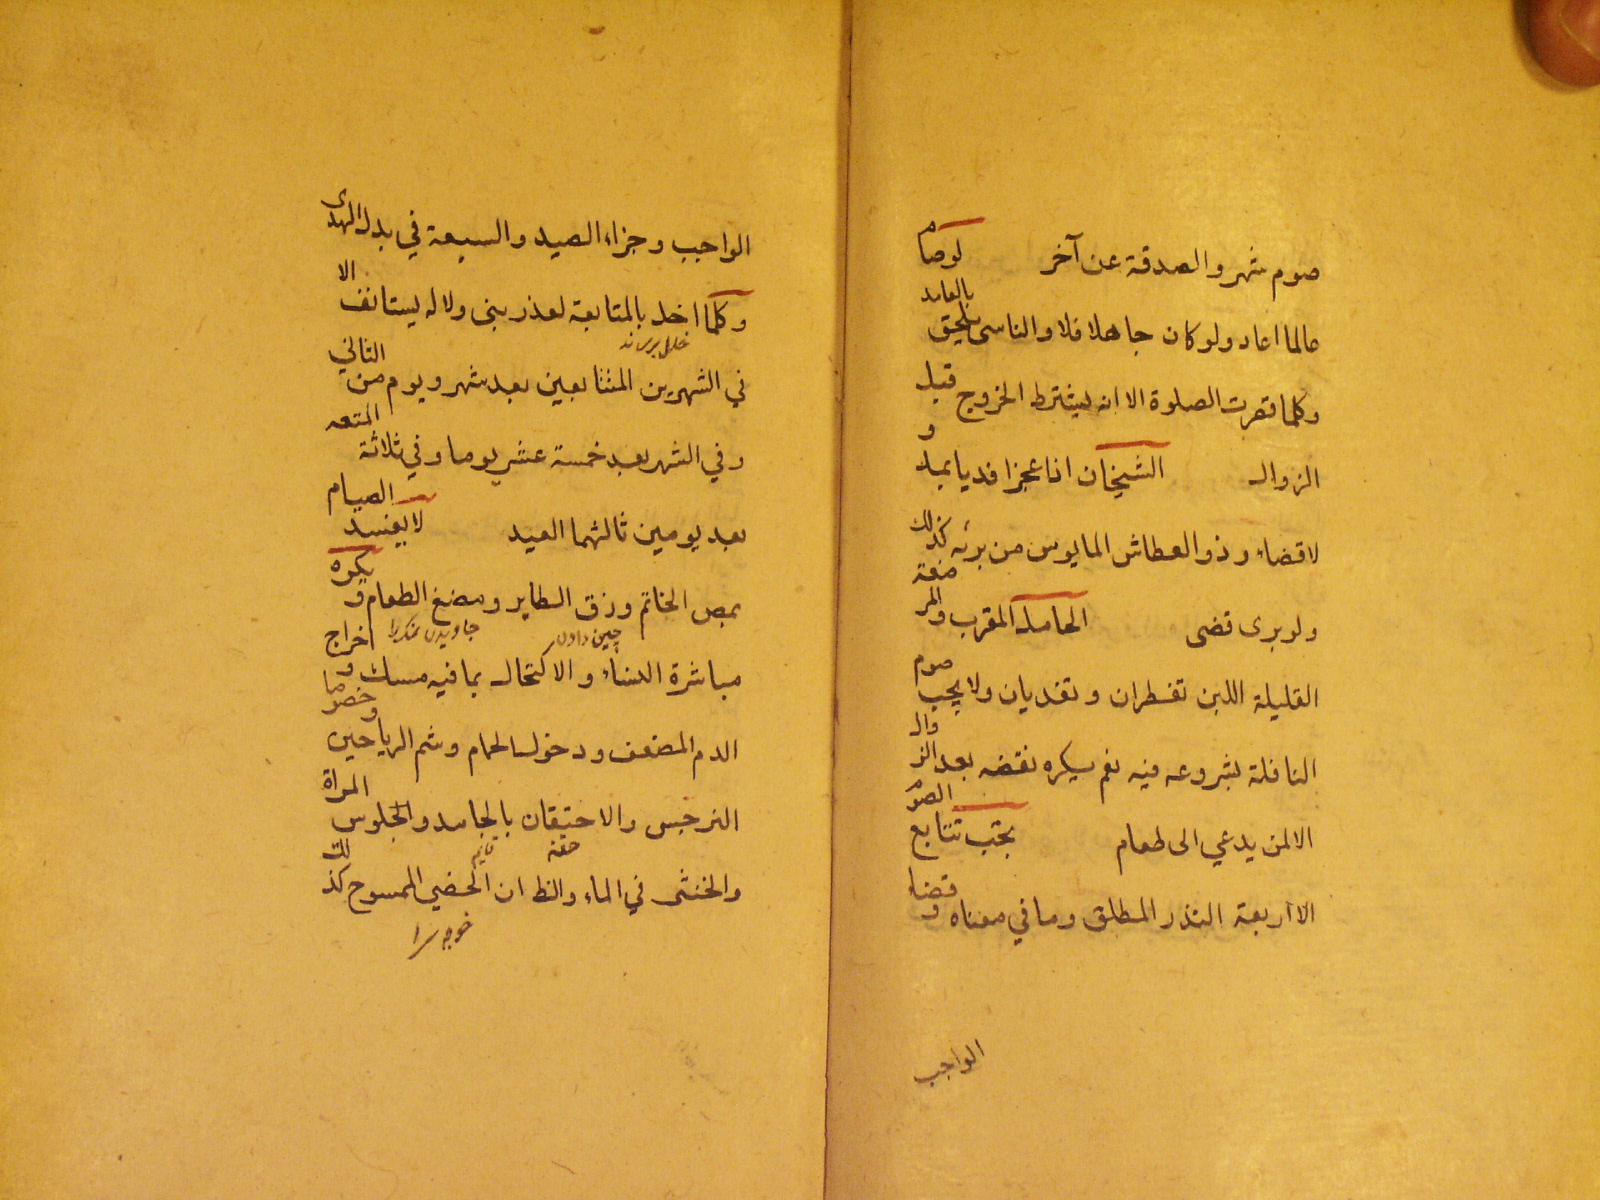 صوم شهر والصدقة عن آخر لوصام
عالما اعاد ولو كان جاهلا فلا والناسى يلحق بالعامد
وكلما قصرت الصلوة الا انه يشترط الخروج قبل
الزوال الشيخان اذا عجزا فديا بمد و
لا قضاء وذو العطاش المايوس من برئه كذلك
ولو برى قضى الحامل المقرب والمرضعة
القليلة اللبن تفطران وتفديان ولا يجب صوم
النافلة بشروعه فيه نعم يكره نقضه بعد الزوال
الا لمن يدعي الى طعام يجب تتابع الصوم
الا اربعة النذر المطلق وما في معناه و قضاء
الواجب
الواجب وجزاء الصيد والسبعة في بدل الهدى
وكلما اخل بالمتابعة لعذر بنى ولا له يستانف الا
خلل برساند
في الشهرين المتتابعين بعد شهر ويوم من الثاني
وفي الشهر بعد خمسة عشر يوما وفي ثلاثة المتعه
بعد يومين ثالثهما العيد لا يفسد الصيام
بمص الخاتم وزق الطاير ومضغ الطعام و يكره
چين دادن جاويدن
مباشرة النساء والاكتحال بما فيه مسك و اخراج
الدم المضعف ودخول الحمام وشم الرياحين وخصوصا
النرجس والاحتقان بالجامد والجلوس المراة
حقنه
والخنثى في الماء والظ ان الخصي الممسوح كذلك